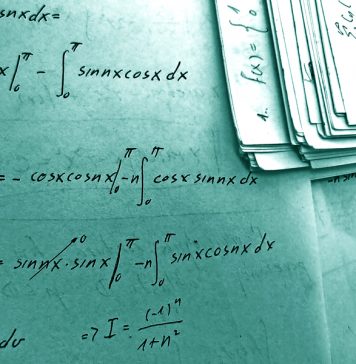 snxdx=
x|₀^π - ∫₀^π sinnxcosx dx
= - cosxcosnx|₀^π -n∫₀^π cosx sinnx dx
= sinnx·sinx|₀^π -n∫₀^π sinxcosnx dx
dv => I = (-1)ⁿ/(1+n²)
1. f(x) = { 1 0